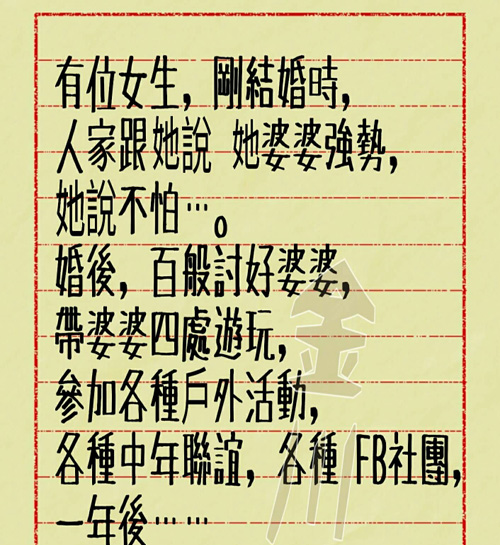 有位女生，剛結婚時，
人家跟她說 她婆婆強勢，
她說不怕…。
婚後，百般討好婆婆，
帶婆婆四處遊玩，
參加各種戶外活動，
各種中年聯誼，各種 FB社團，
一年後……
金川